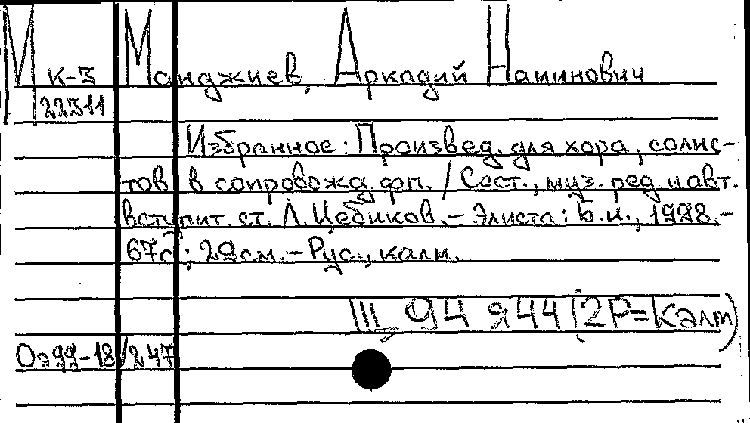 М к-3 Манджиев, Аркадий Наминович
22311
Избранное: Произвед. для хора, солис-
тов в сопровожд. фп. / Сост., муз. ред. и авт.
вступит. ст. Л. Цебиков. - Элиста: Б.и., 1998. -
67с; 29см. - Рус., калм.
Щ 94 я44(2Р=Калм)
Оэ99-18/247